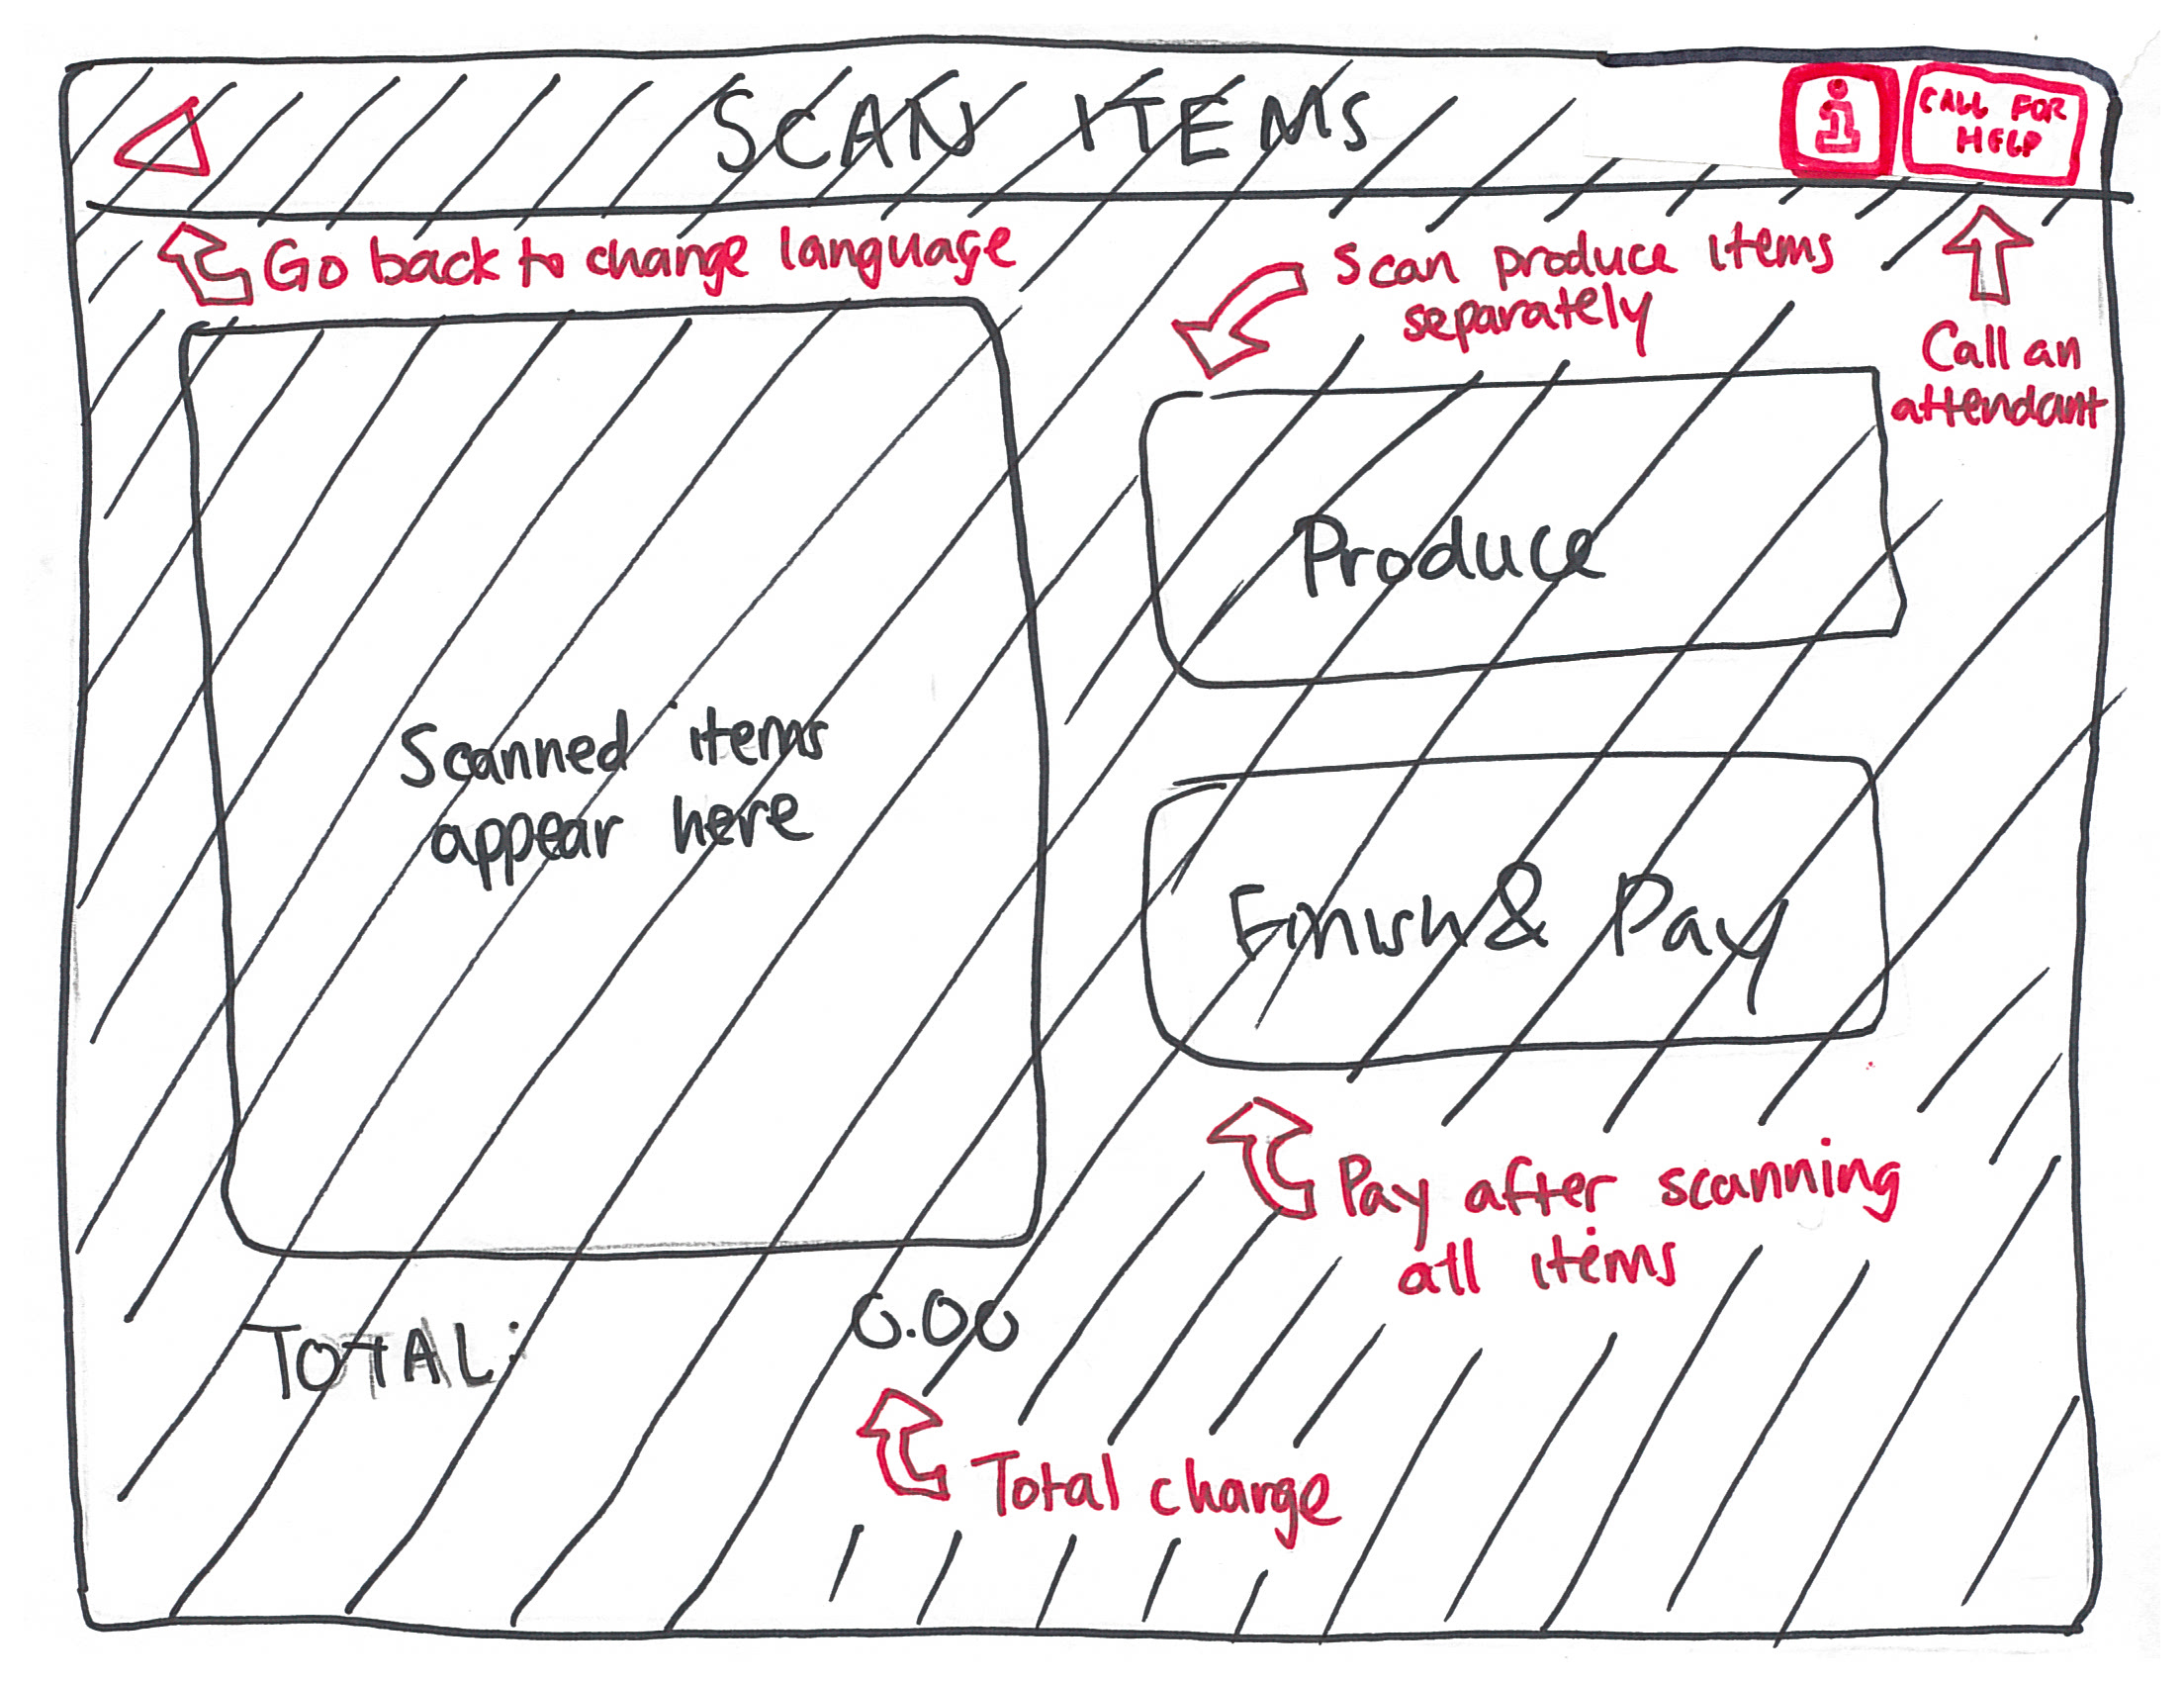 SCAN ITEMS
i
CALL FOR
HELP
Go back to change language
scan produce items
separately
Call an
attendant
Produce
Scanned items
appear here
Finish & Pay
Pay after scanning
all items
TOTAL:
0.00
Total charge